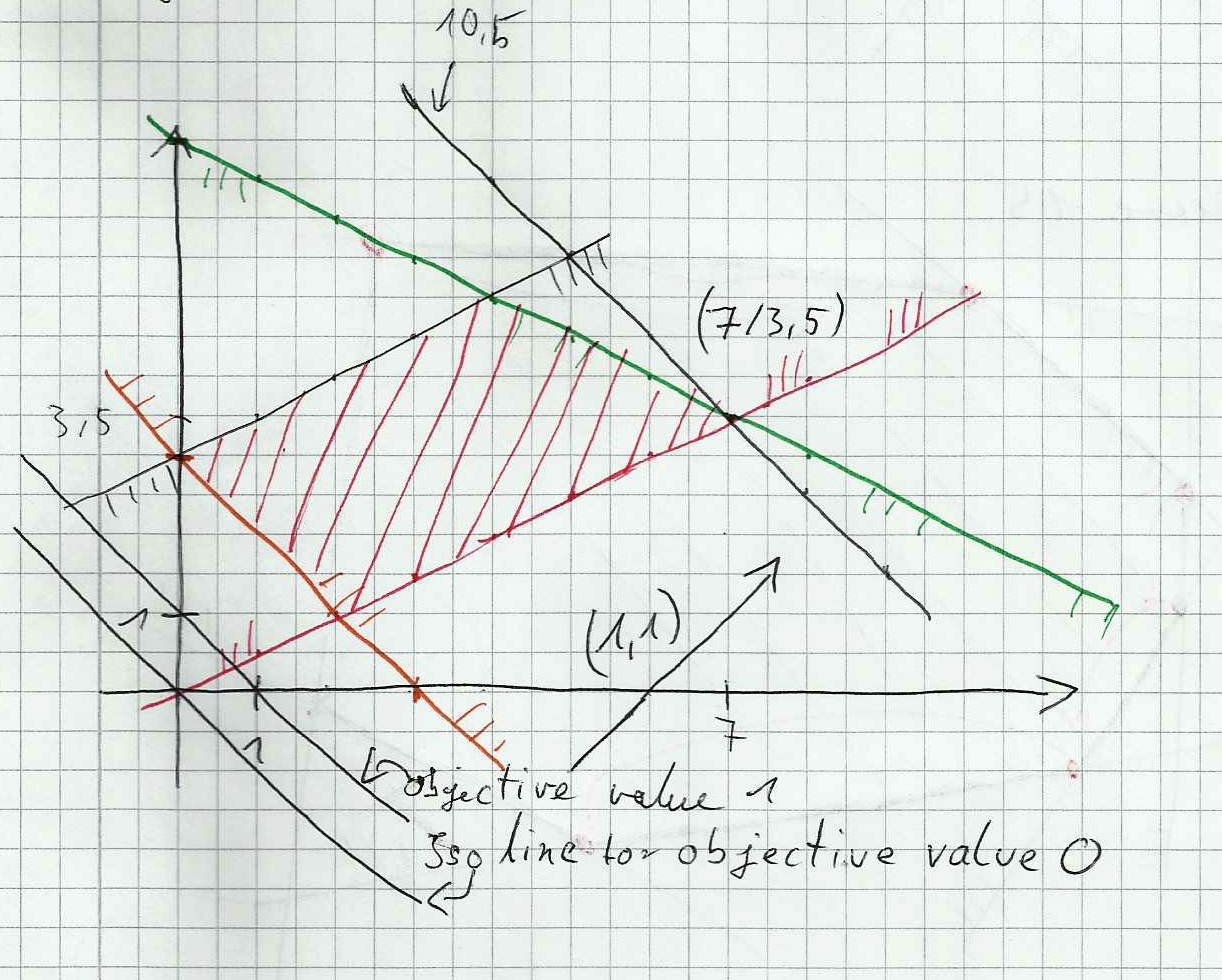 10,5
(7/3,5)
3,5
1
(1,1)
7
1
objective value 1
Iso line for objective value 0